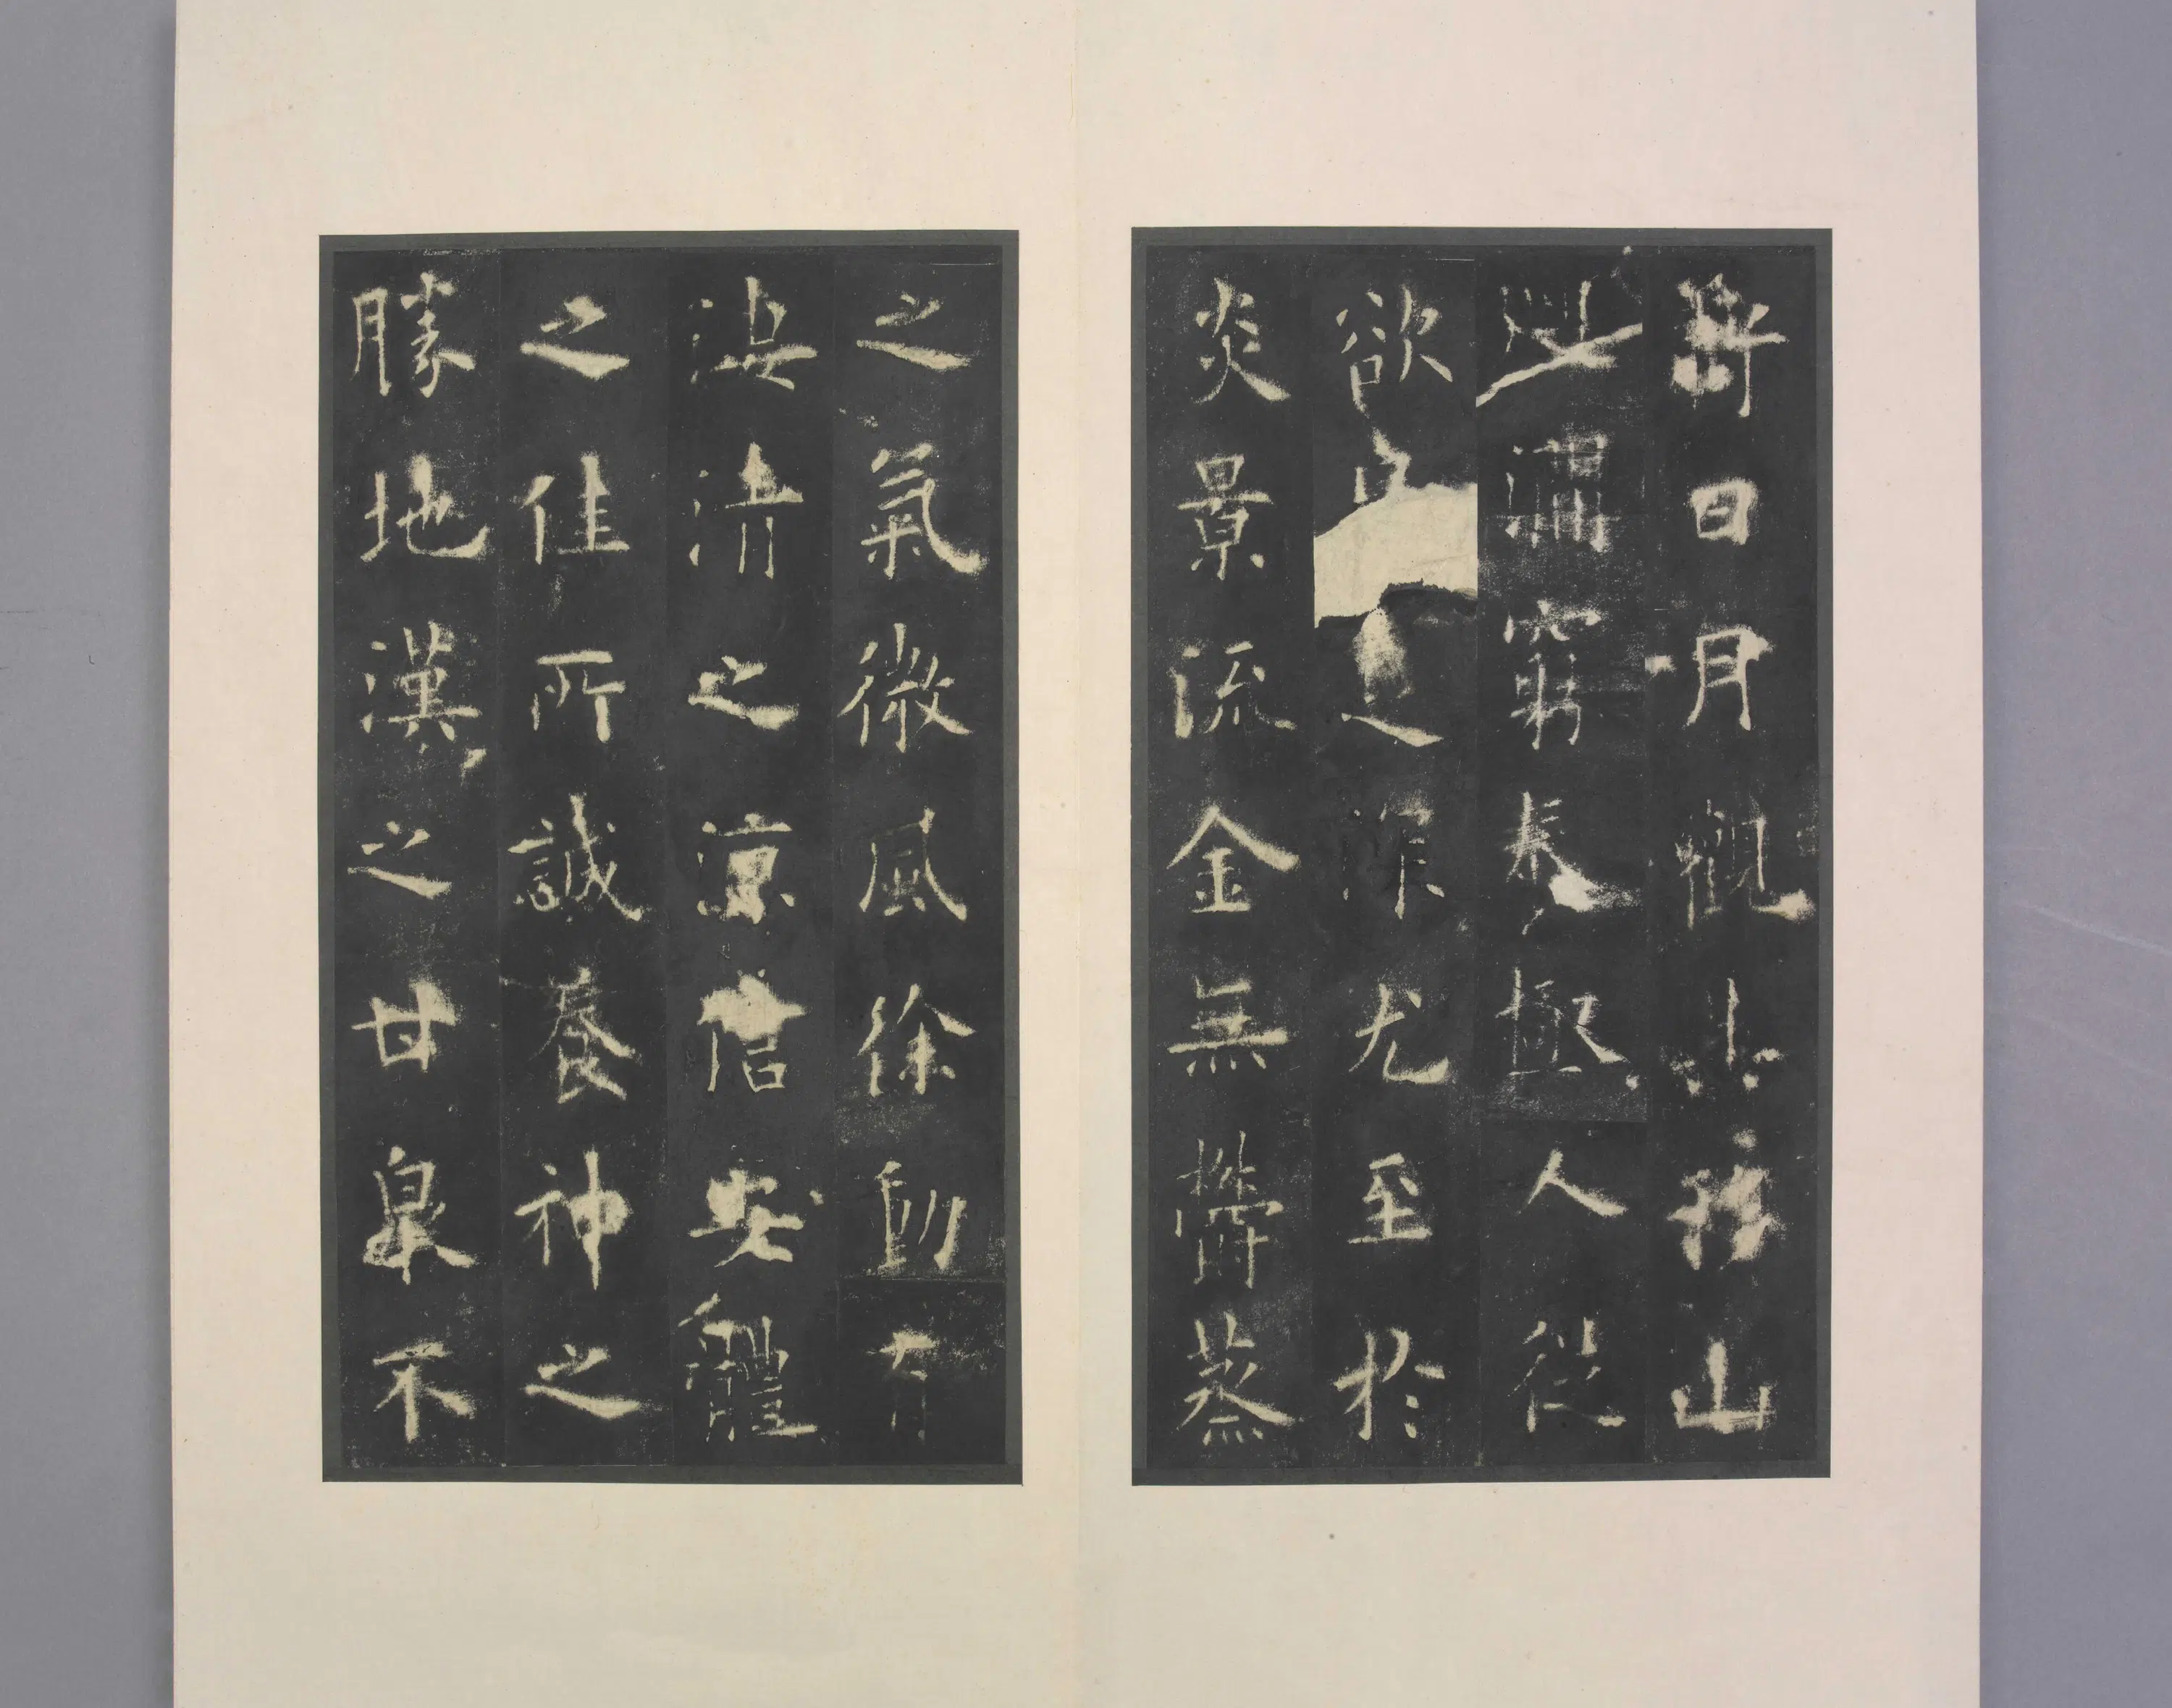 虧日月觀其移山
迴澗窮泰極人從
欲深尤至於
炎景流金無鬱蒸
之氣微風徐動有
淒清之涼信安體
之佳所誠養神之
勝地漢之甘泉不